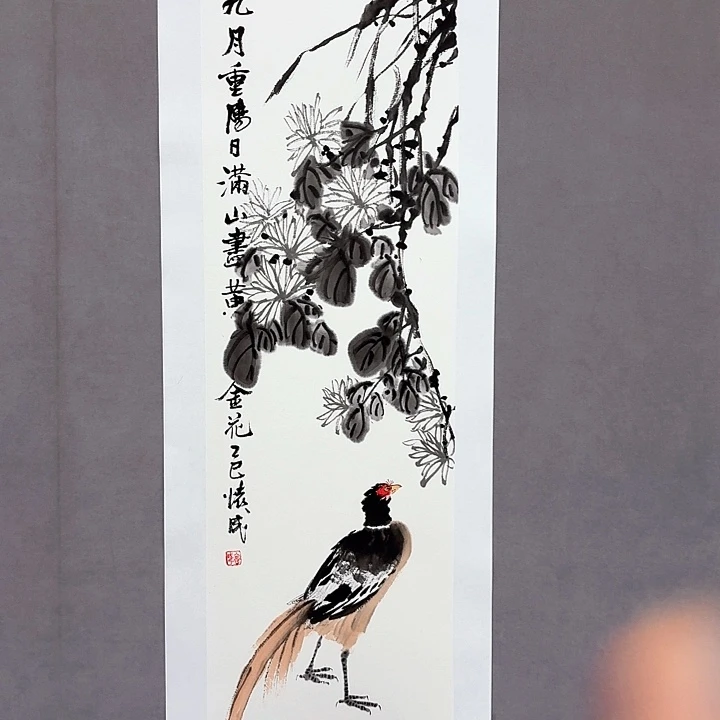 九月重陽日滿山畫黃金花乙巳懷民